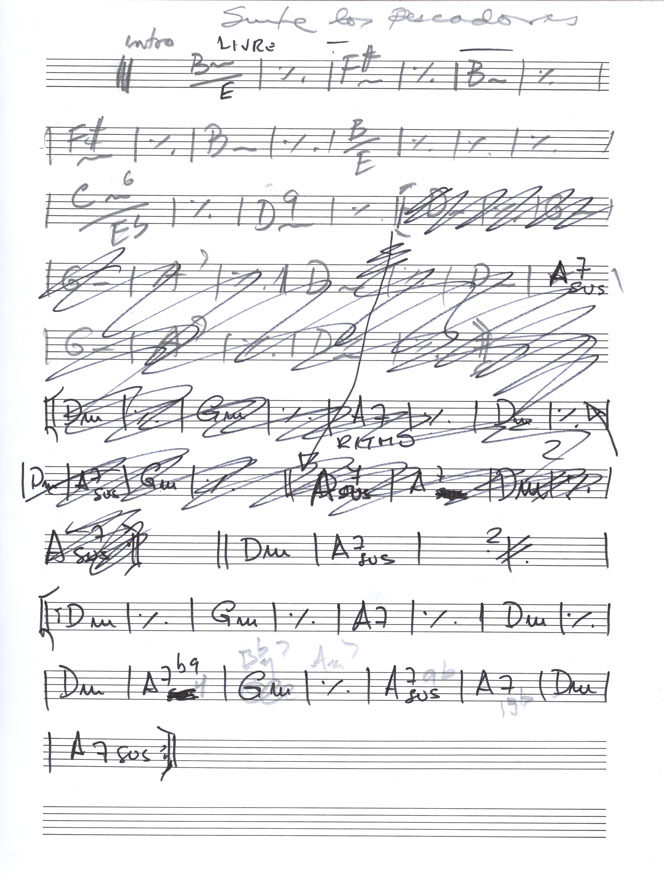 Suite los Pescadores
intro LIVRE
B~/E | ٪ | F#~ | ٪ | B~ | ٪ |
| F#~ | ٪ | B~ | ٪ | B/E | ٪ | ٪ | ٪
| C~6/Eb | ٪ | D9~ | ٪ ||
| G~ | A7 | ٪ | D~ | ٪ | D~ | A7sus |
| G~ | A7 | ٪ | D~
|| Dm | ٪ | Gm | ٪ | A7 | ٪ | Dm | ٪
RITMO 2
| Dm | A7sus | Gm | ٪ || A7sus | A7 | Dm | ٪ |
A7sus || Dm | A7sus | 2 ٪ |
||: Dm | ٪ | Gm | ٪ | A7 | ٪ | Dm | ٪ |
Bb7 Am7
| Dm | A7b9 | Gm | ٪ | A7sus 9b | A7 | Dm |
| A7sus :||